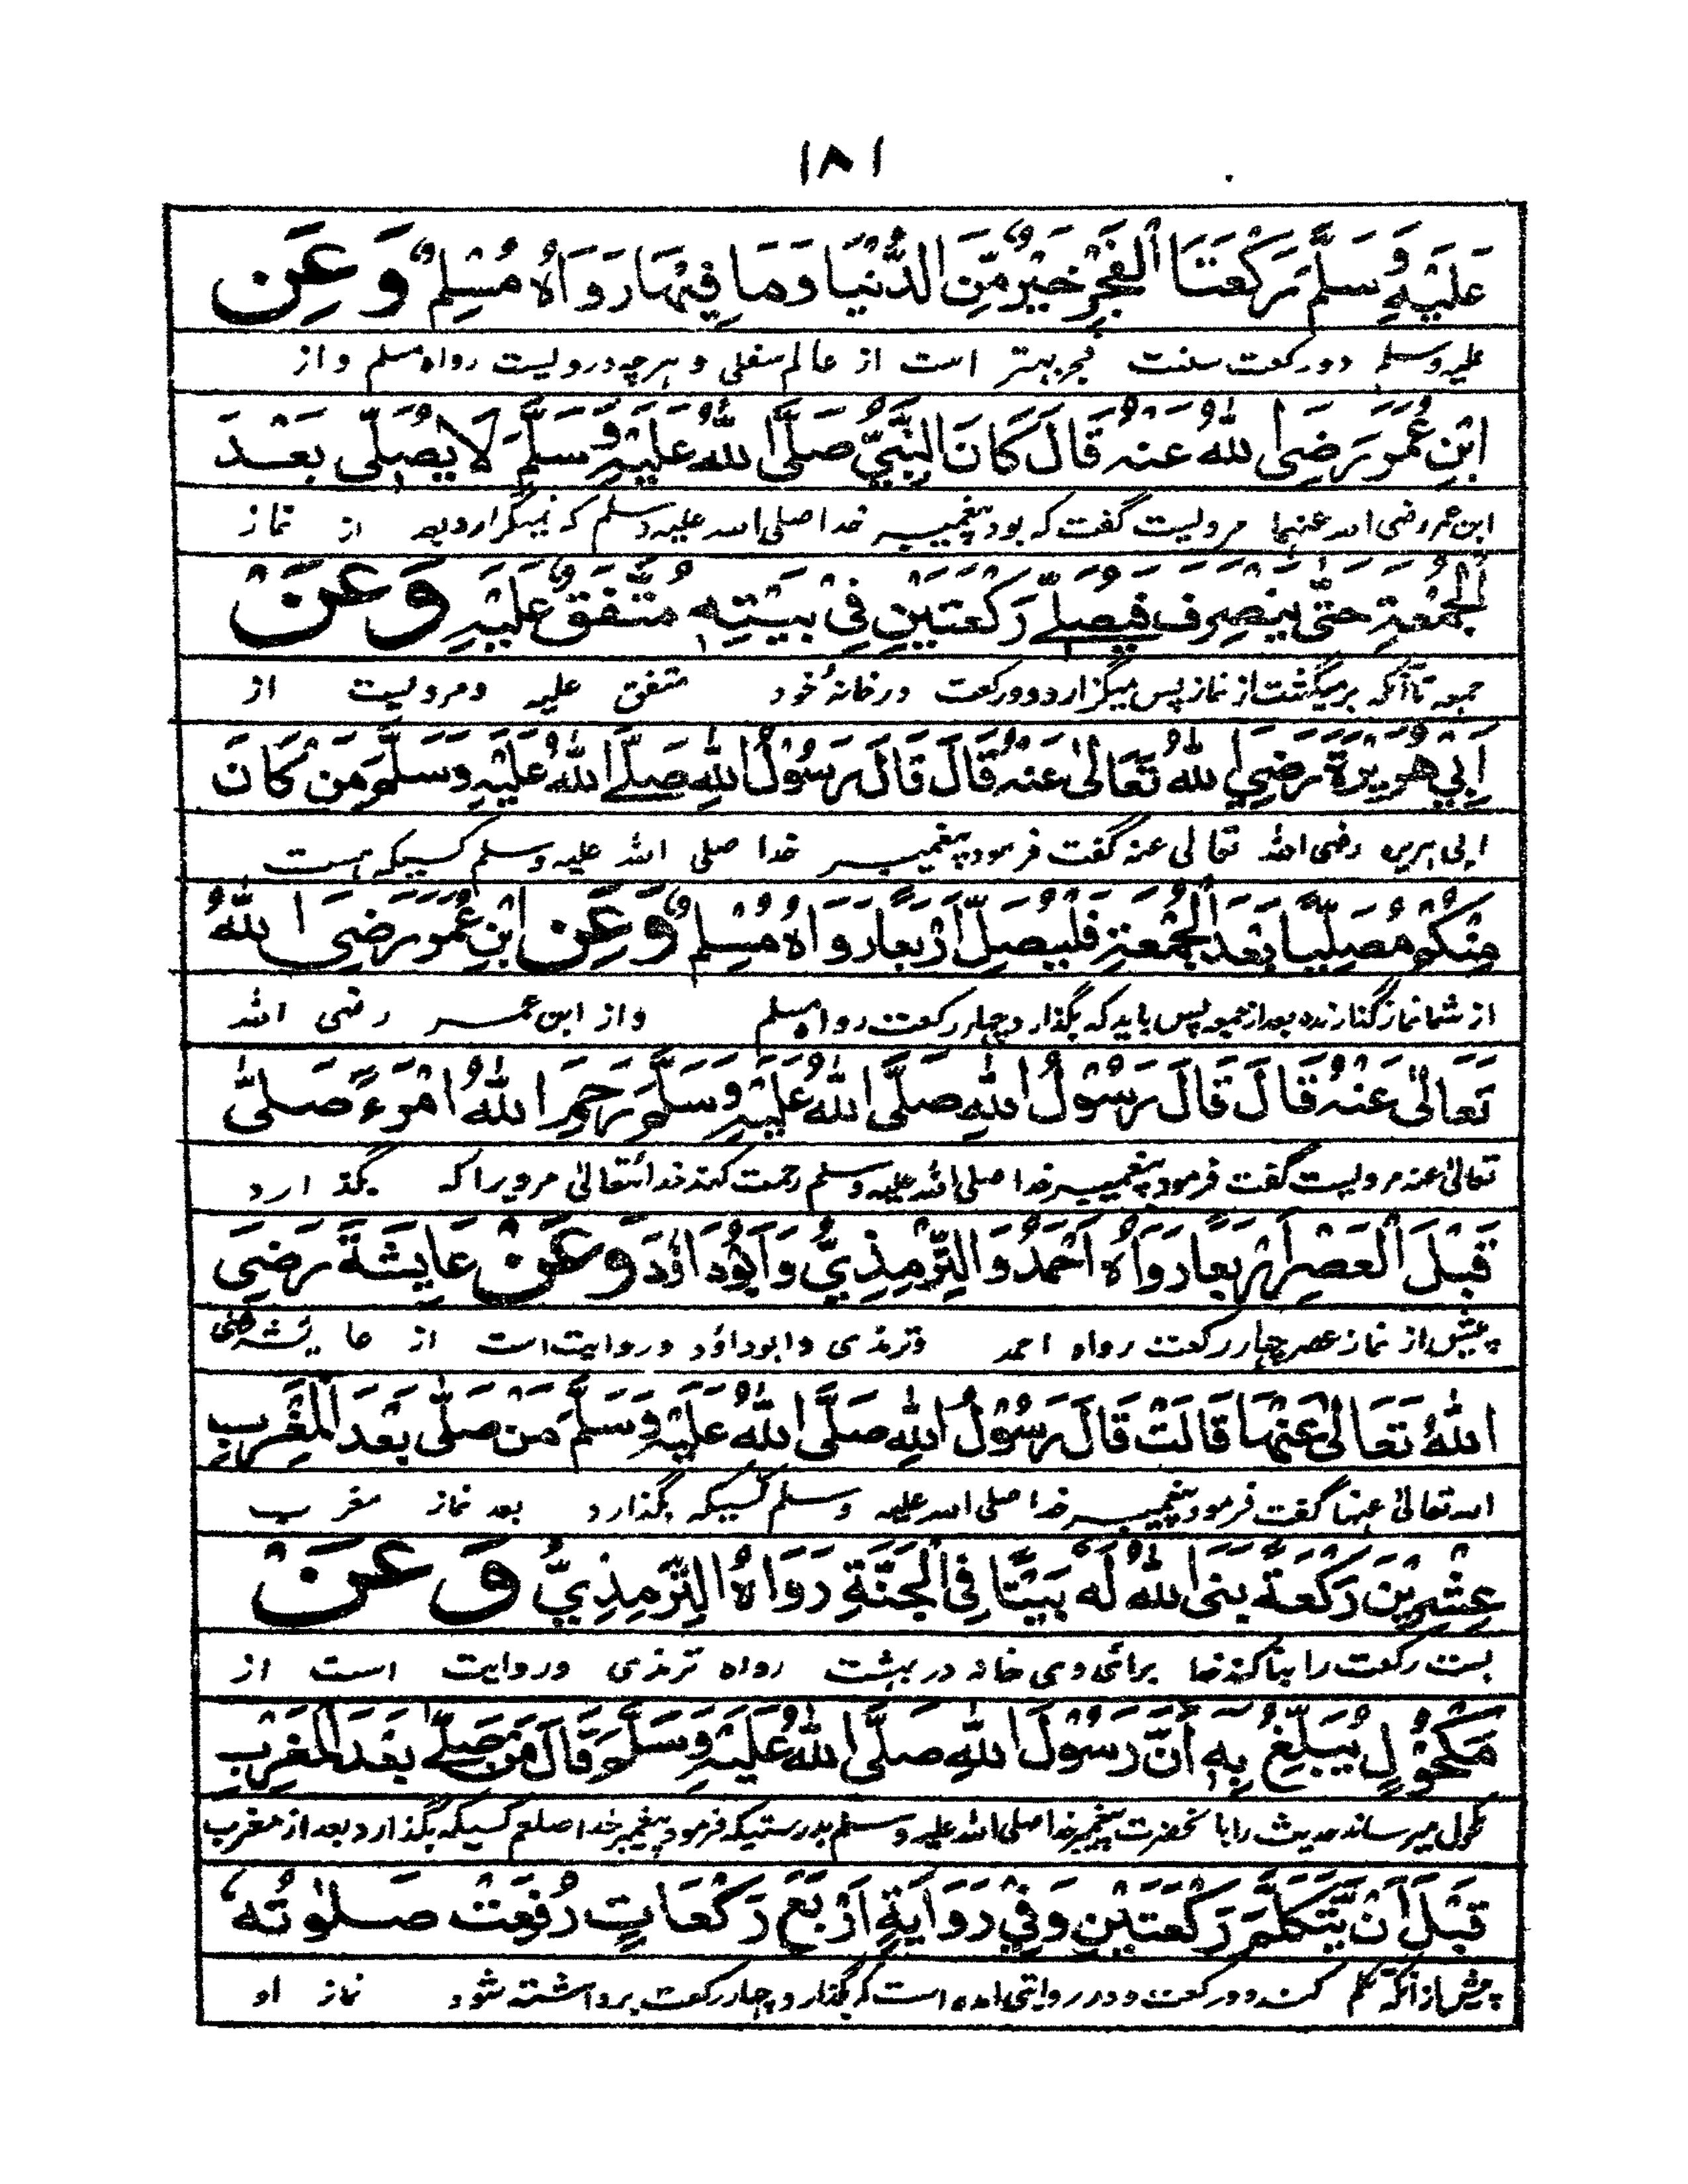 ١٨١
عَلَيْهِ وَسَلَّمَ رَكْعَتَا الْفَجْرِ خَيْرٌ مِّنَ الدُّنْيَا وَمَا فِيْهَا رَوَاهُ مُسْلِمٌ وَعَنِ
علیه وسلم دو رکعت سنت فجر بهتر است از عالم سفلی و هرچه درولیست رواه مسلم و از
ابْنِ عُمَرَ رَضِيَ اللهُ عَنْهُ قَالَ كَانَ النَّبِيُّ صَلَّى اللهُ عَلَيْهِ وَسَلَّمَ لَا يُصَلِّي بَعْدَ
ابن عمر رضی الله عنهما مرولیست گفت که بود پیغمبر خدا صلی الله علیه وسلم که نمیگزارد بعد از نماز
الْجُمُعَةِ حَتّٰى يَنْصَرِفَ فَيُصَلِّيْ رَكْعَتَيْنِ فِيْ بَيْتِهٖ مُتَّفَقٌ عَلَيْهِ وَعَنْ
جمعه تا آنکه برمیگشت از نماز پس میگزارد دو رکعت در خانهٔ خود متفق علیه و مرولیست از
اَبِيْ هُرَيْرَةَ رَضِيَ اللهُ تَعَالٰى عَنْهُ قَالَ قَالَ رَسُوْلُ اللهِ صَلَّى اللهُ عَلَيْهِ وَسَلَّمَ مَنْ كَانَ
ابی هریره رضی الله تعالی عنه گفت فرمود پیغمبر خدا صلی الله علیه وسلم کسیکه هست
مِنْكُمْ مُصَلِّيًا بَعْدَ الْجُمُعَةِ فَلْيُصَلِّ اَرْبَعًا رَوَاهُ مُسْلِمٌ وَعَنِ ابْنِ عُمَرَ رَضِيَ اللهُ
از شما نماز گذارنده بعد از جمعه پس باید که بگذارد چهار رکعت رواه مسلم و از ابن عمر رضی الله
تَعَالٰى عَنْهُ قَالَ قَالَ رَسُوْلُ اللهِ صَلَّى اللهُ عَلَيْهِ وَسَلَّمَ رَحِمَ اللهُ امْرَءً صَلّٰى
تعالیٰ عنه مرولیست گفت فرمود پیغمبر خدا صلی الله علیه وسلم رحمت کند خدا تعالیٰ مردیرا که بگذارد
قَبْلَ الْعَصْرِ اَرْبَعًا رَوَاهُ اَحْمَدُ وَالتِّرْمِذِيُّ وَاَبُوْدَاؤدَ وَعَنْ عَايِشَةَ رَضِيَ
پیش از نماز عصر چهار رکعت رواه احمد و ترمذی و ابوداؤد و روایت است از عایشه رضی
اللهُ تَعَالٰى عَنْهَا قَالَتْ قَالَ رَسُوْلُ اللهِ صَلَّى اللهُ عَلَيْهِ وَسَلَّمَ مَنْ صَلّٰى بَعْدَ الْمَغْرِبِ
الله تعالیٰ عنها گفت فرمود پیغمبر خدا صلی الله علیه وسلم کسیکه بگذارد بعد نماز مغرب
عِشْرِيْنَ رَكْعَةً بَنَى اللهُ لَهٗ بَيْتًا فِى الْجَنَّةِ رَوَاهُ التِّرْمِذِيُّ وَعَنْ
بست رکعت را بنا کند خدا برائی وی خانه در بهشت رواه ترمذی و روایت است از
مَكْحُوْلٍ يُبَلِّغُ بِهٖ اَنَّ رَسُوْلَ اللهِ صَلَّى اللهُ عَلَيْهِ وَسَلَّمَ قَالَ مَنْ صَلّٰى بَعْدَ الْمَغْرِبِ
مکحول میرساند حدیث را با نحضرت پیغمبر خدا صلی الله علیه وسلم بدرستیکه فرمود پیغمبر خدا صلعم کسیکه بگذارد بعد از مغرب
قَبْلَ اَنْ يَّتَكَلَّمَ رَكْعَتَيْنِ وَفِيْ رَوَايَةٍ اَرْبَعَ رَكْعَاتٍ رُفِعَتْ صَلٰوتُهٗ
پیش از آنکه تکلم کند دو رکعت و در روایتی آمده است که بگذارد چهار رکعت برداشته شود نماز او